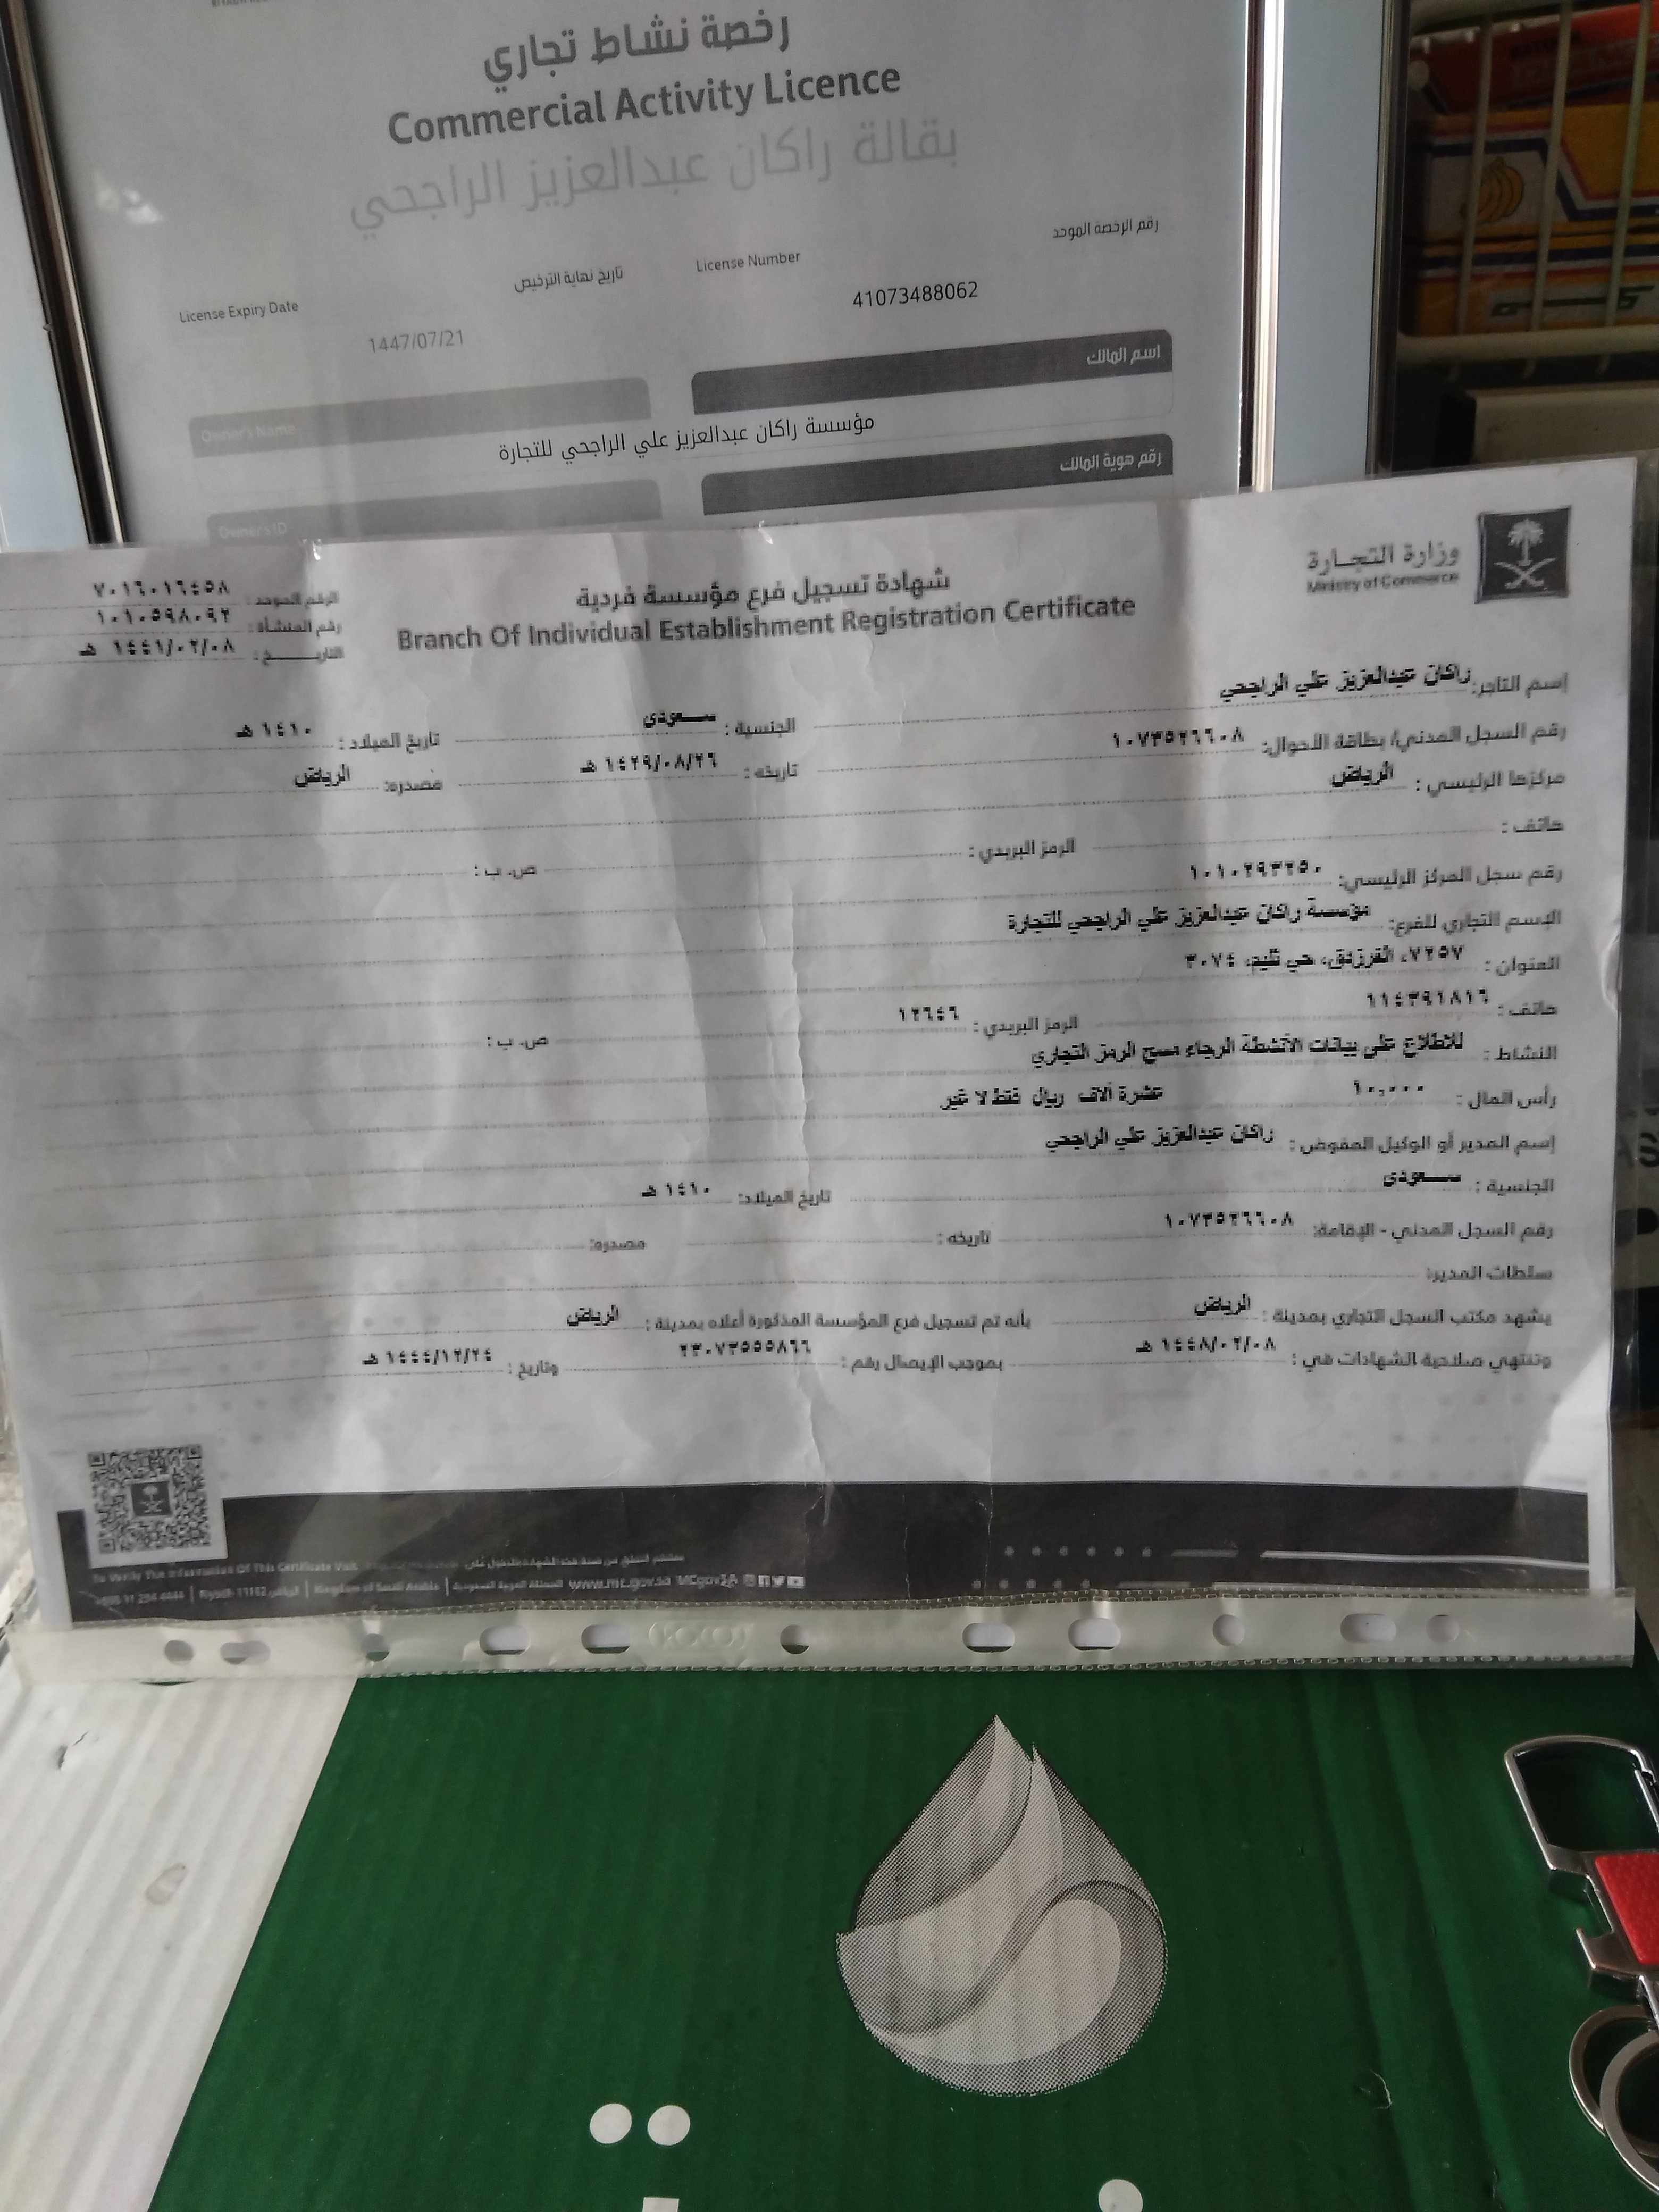 رخصة نشاط تجاري
Commercial Activity Licence
بقالة راكان عبدالعزيز الراجحي
رقم الرخصة الموحد
License Number
41073488062
تاريخ نهاية الترخيص
License Expiry Date
1447/07/21
اسم المالك
Owner's Name
مؤسسة راكان عبدالعزيز علي الراجحي للتجارة
رقم هوية المالك
Owner's ID
وزارة التجارة
Ministry of Commerce
شهادة تسجيل فرع مؤسسة فردية
Branch Of Individual Establishment Registration Certificate
الرقم الموحد : ٧٠١٦٠١٦٤٥٨
رقم المنشأة : ١٠١٠٥٩٨٠٩٢
التاريــــــخ : ١٤٤١/٠٢/٠٨ هـ
إسم التاجر: راكان عبدالعزيز علي الراجحي
رقم السجل المدني/ بطاقة الأحوال: ١٠٧٣٥٢٦٦٠٨ الجنسية : ســـعودى تاريخ الميلاد : ١٤١٠ هـ
مركزها الرئيسي : الرياض تاريخه : ١٤٢٩/٠٨/٢٦ هـ مصدره: الرياض
هاتف : الرمز البريدي : ص. ب :
رقم سجل المركز الرئيسي: ١٠١٠٢٩٣٢٥٠
الإسم التجاري للفرع: مؤسسة راكان عبدالعزيز علي الراجحي للتجارة
العنوان : ٧٢٥٧، الفرزدق، حي ثليم، ٣٠٧٤
هاتف : ١١٤٣٩١٨١٦ الرمز البريدي : ١٢٦٤٦ ص. ب :
النشاط : للاطلاع على بيانات الأنشطة الرجاء مسح الرمز التجاري
رأس المال : ١٠,٠٠٠ عشرة آلاف ريال فقط لا غير
إسم المدير أو الوكيل المفوض : راكان عبدالعزيز علي الراجحي
الجنسية : ســـعودى تاريخ الميلاد: ١٤١٠ هـ
رقم السجل المدني - الإقامة: ١٠٧٣٥٢٦٦٠٨ تاريخه : مصدره:
سلطات المدير:
يشهد مكتب السجل التجاري بمدينة : الرياض بأنه تم تسجيل فرع المؤسسة المذكورة أعلاه بمدينة : الرياض
وتنتهي صلاحية الشهادات في : ١٤٤٨/٠٢/٠٨ هـ بموجب الإيصال رقم : ٢٣٠٧٣٥٥٥٨٦٦ وتاريخ : ١٤٤٤/١٢/٢٤ هـ
To Verify The Information Of This Certificate Visit
Riyadh 11162 الرياض | Kingdom of Saudi Arabia | المملكة العربية السعودية www.mc.gov.sa MCgovSA